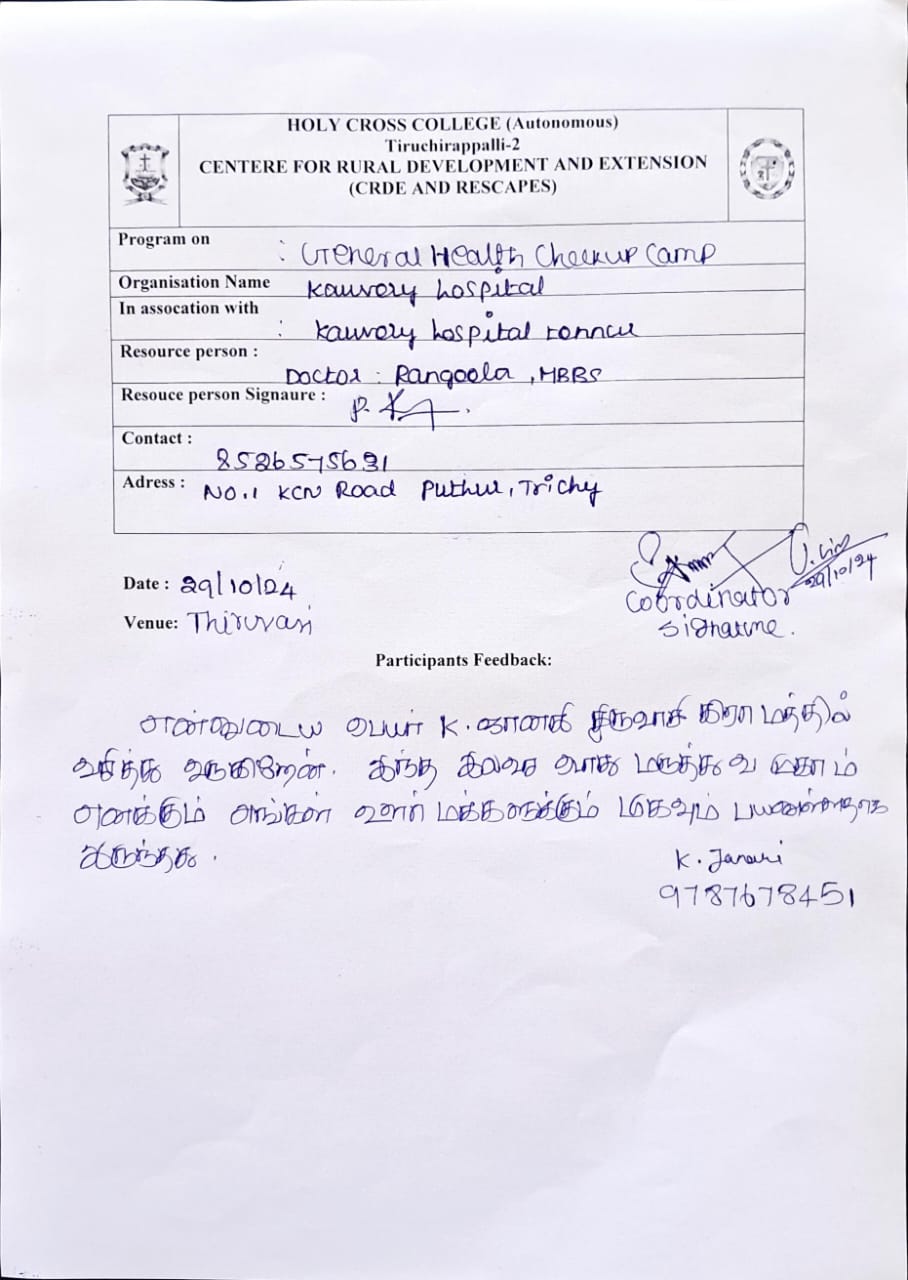 HOLY CROSS COLLEGE (Autonomous)
Tiruchirappalli-2
CENTERE FOR RURAL DEVELOPMENT AND EXTENSION
(CRDE AND RESCAPES)
Program on : General Health Checkup Camp
Organisation Name Kauvery hospital
In assocation with : Kauvery hospital tennur
Resource person : Doctor : Rangoola , MBBS
Resouce person Signaure :
Contact : 8526575631
Adress : NO.1 KCN Road Puthur, Trichy
Date : 29/10/24
29/10/24
Coordinator
Signature.
Venue: Thiruvasi
Participants Feedback:
என்னுடைய பெயர் K. ஜானகி திருவாசி கிராமத்தில்
வசித்து வருகிறேன். இந்த இலவச மருத்துவ முகாம்
எனக்கும் எங்கள் ஊர் மக்களுக்கும் மிகவும் பயனுள்ளதாக
இருந்தது.
K. Janaki
9787678451